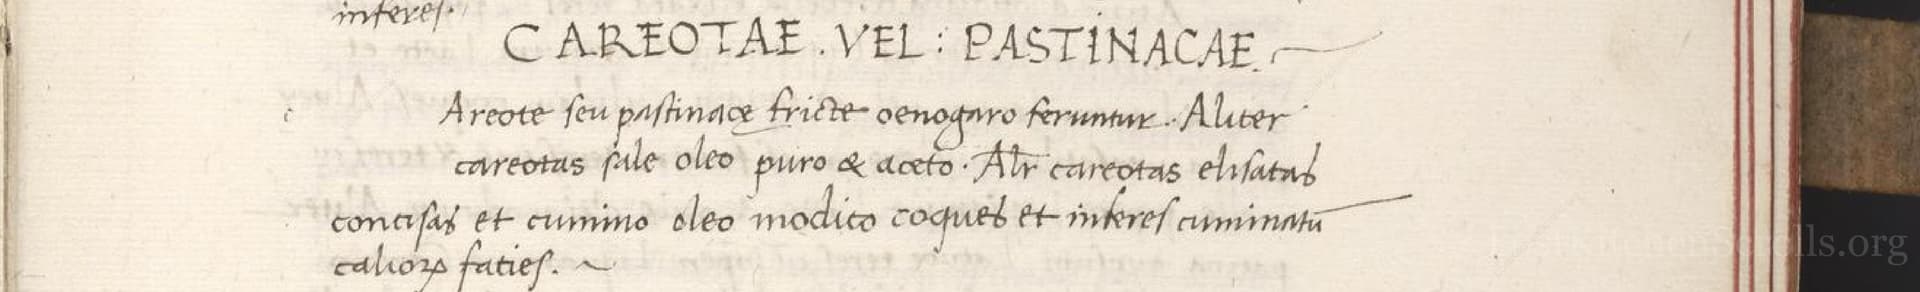 inferes.
CAREOTAE . VEL : PASTINACAE.
Areote seu pastinace fricte oenogaro feruntur. Aliter
careotas sale oleo puro & aceto. Alr careotas elisatas
concisas et cumino oleo modico coques et inferes cuminatū
caliorꝝ faties.